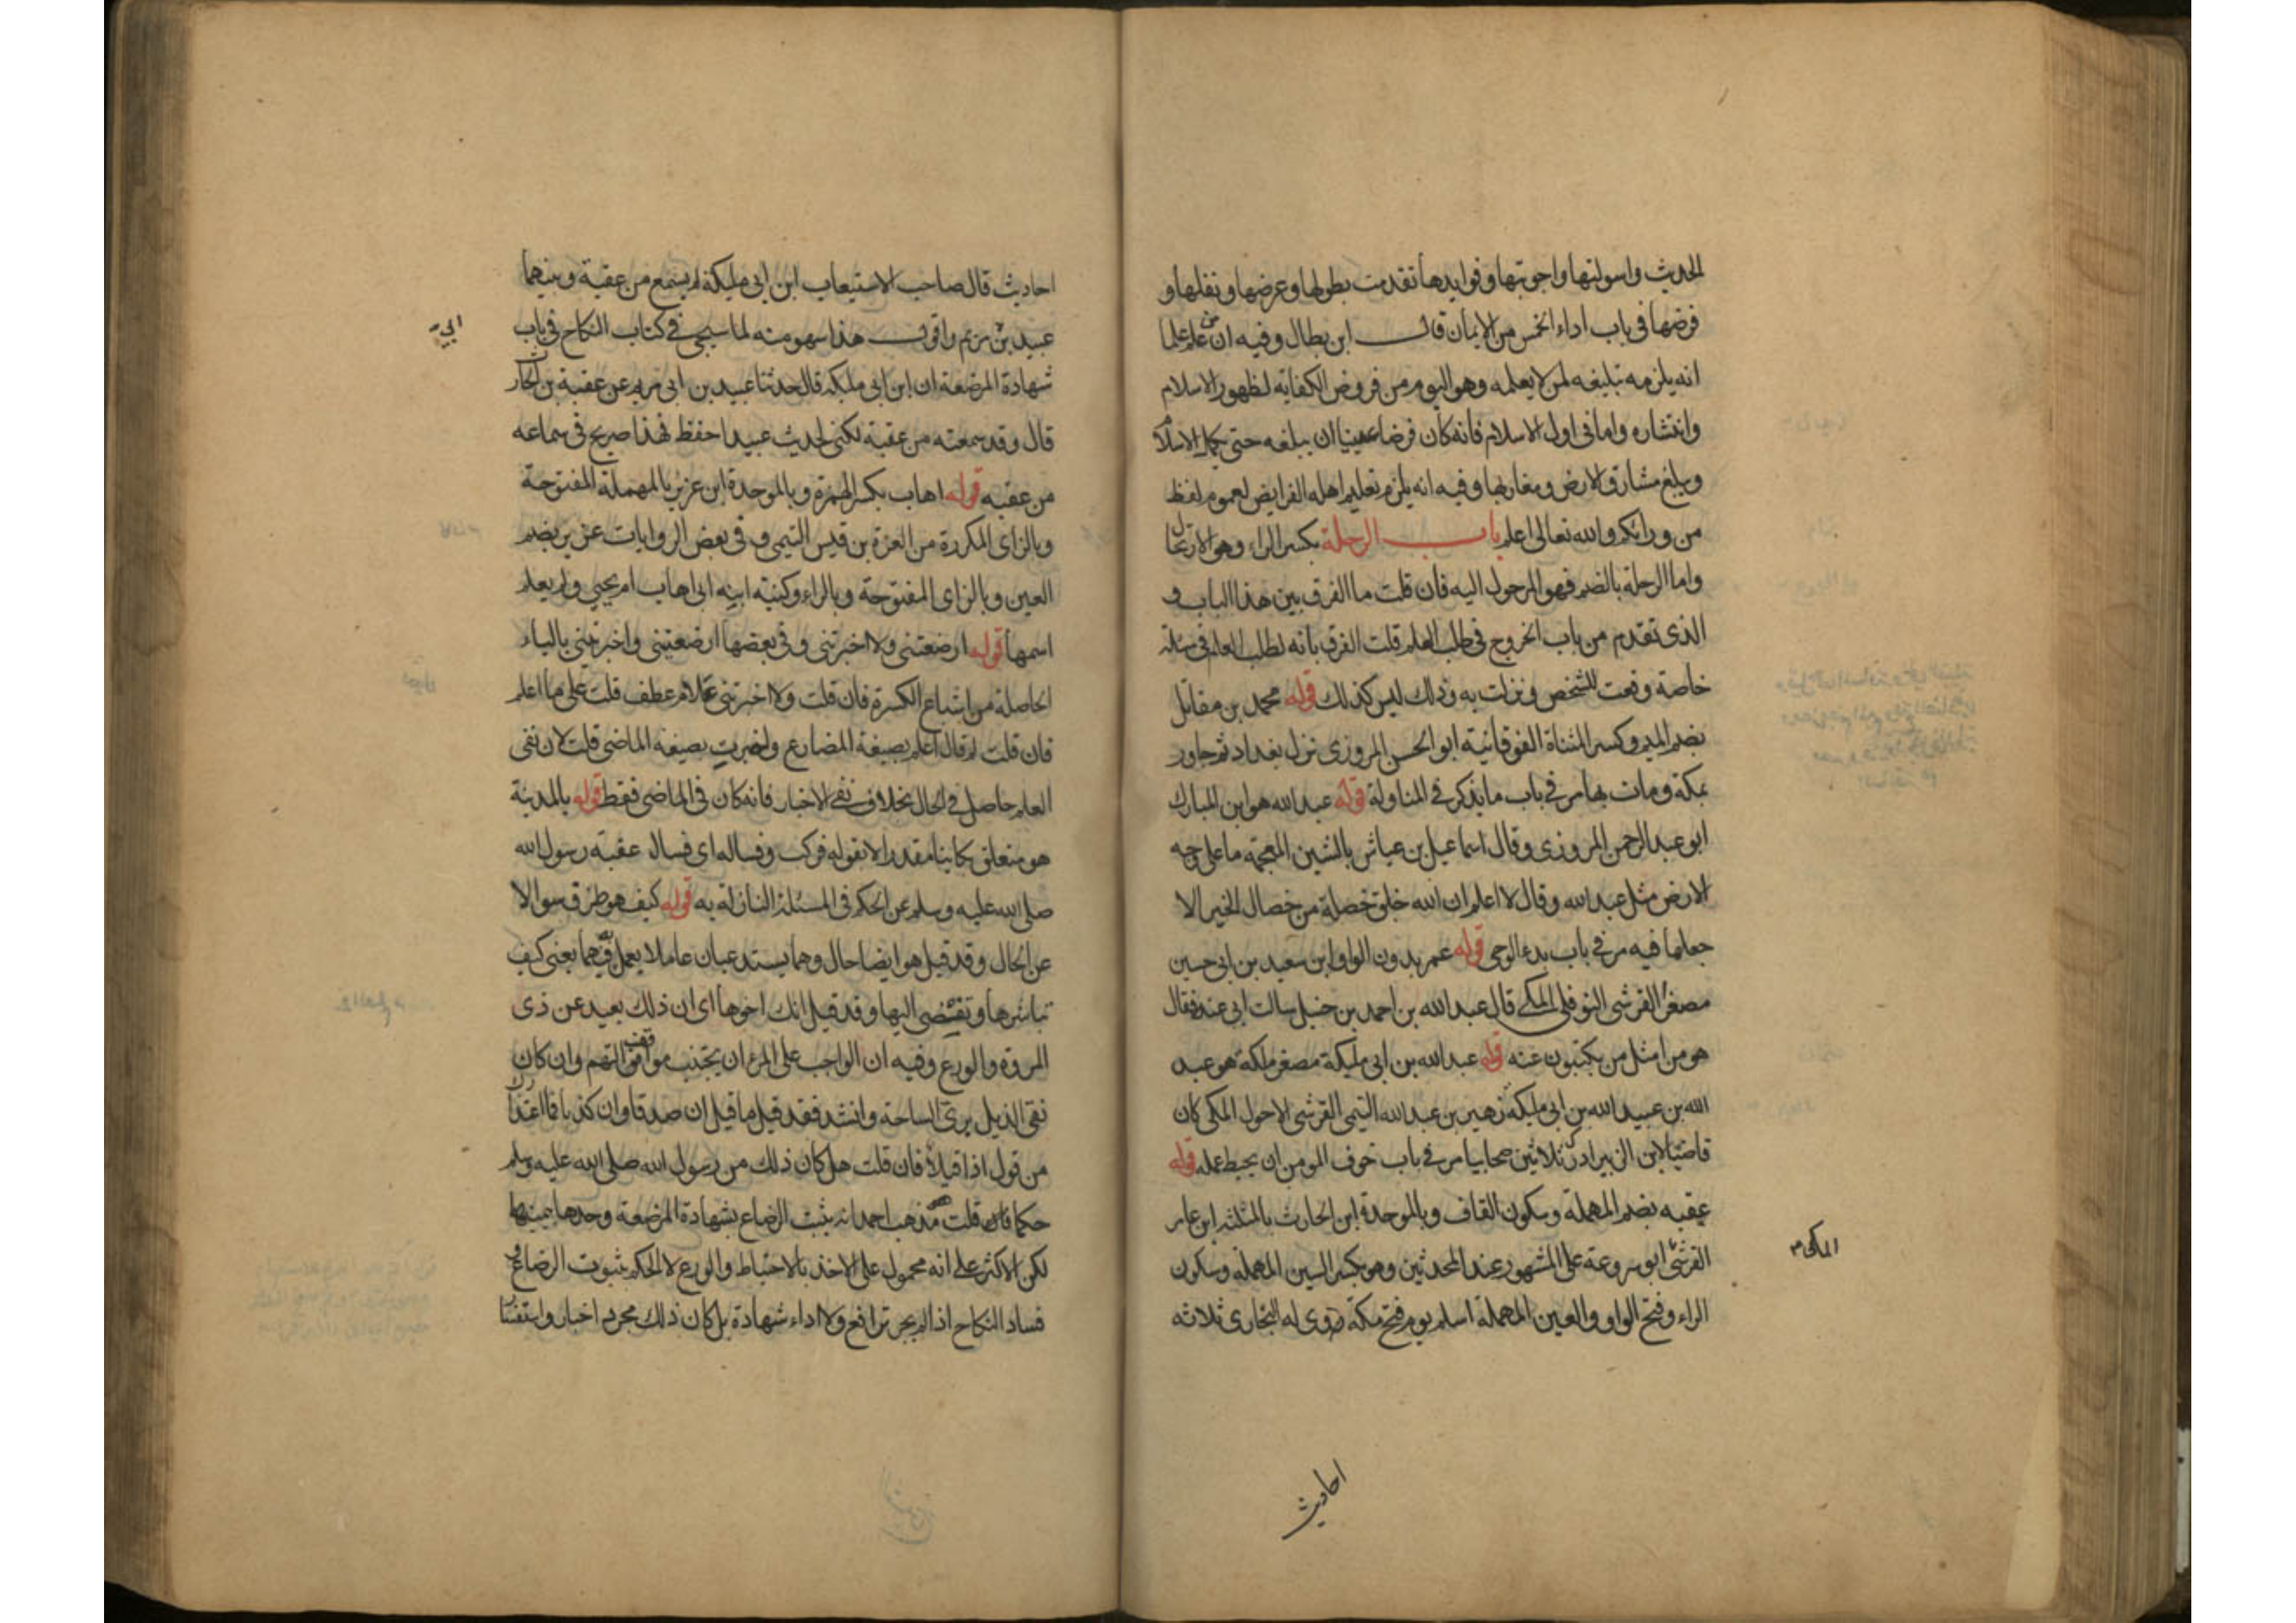 الحديث واسولتها واجوبتها وفوايدها تقدمت بطولها وعرضها ونفلها و
فرضها في باب اداء الخمس من الايمان قال ابن بطال وفيه ان من علم علما
انه يلزمه تبليغه لمن لا يعلمه وهو اليوم من فروض الكفاية لظهور الاسلام
وانتشاره واما في اول الاسلام فانه كان فرضا معينا ان يبلغه حتى يكمل الاسلام
ويبلغ مشارق الارض ومغاربها وفيه انه يلزم تعليم اهله الفرايض لعموم لفظ
من ورائكم والله تعالى اعلم باب الرحلة بكسر الراء وهو الارتحال
واما الرحلة بالضم فهو المرحول اليه فان قلت ما الفرق بين هذا الباب و
الذي تقدم من باب الخروج في طلب العلم قلت الفرق بانه لطلب العلم في مسئلة
خاصة وقعت للشخص ونزلت به وذلك ليس كذلك قوله محمد بن مقاتل
بضم الميم وكسر المثناة الفوقانية ابو الحسن المروزى نزل بغداد ثم جاور
بمكة ومات بها مر في باب ما يذكر في المناولة قوله عبد الله هو ابن المبارك
ابو عبد الرحمن المروزى وقال اسماعيل بن عياش بالشين المعجمة ما على وجه
الارض مثل عبد الله وقال لا اعلم ان الله خلق خصلة من خصال الخير الا
جعلها فيه مر في باب بدء الوحى قوله عمر بدون الواو ابن سعيد بن ابى حسين
مصغرا القرشى النوفلى المكى قال عبد الله بن احمد بن حنبل سالت ابى عنه فقال
هو من امثل من يكتبون عنه قوله عبد الله بن ابى مليكة مصغر ملكة هو عبد
الله بن عبيد الله بن ابى مليكة زهير بن عبد الله التيمى القرشى الاحول المكى كان
قاضيا لابن الزبير ادرك ثلاثين صحابيا مر في باب خوف المومن ان يحبط عمله قوله
عقبه بضم المهملة وسكون القاف وبالموحدة ابن الحارث بالمثلثه ابن عامر
القرشى ابو سروعة على المشهور عند المحدثين وهو بكسر السين المهملة وسكون
المكى
الراء وفتح الواو والعين المهملة اسلم يوم فتح مكة روى له البخارى ثلاثه
احاديث
احاديث قال صاحب الاستيعاب ابن ابى مليكة لم يسمع من عقبة وبينهما
عبيد بن مريم واقول هذا سهو منه لما سيجى في كتاب النكاح في باب
ابى
شهادة المرضعة ان ابن ابى مليكه قال حدثنا عبيد بن ابى مريم عن عقبة بن الحارث
قال وقد سمعته من عقبة لكنى لحديث عبيد احفظ فهذا صريح في سماعه
من عقبه قوله اهاب بكسر الهمزة وبالموحدة ابن عزيز بالمهملة المفتوحة
وبالزاى المكررة من العزة بن قيس التيمى وفي بعض الروايات عزير بضم
العين وبالزاى المفتوحة وبالراء وكنيته ابنه ابى اهاب ام يحيى ولم يعلم
اسمها قوله ارضعتنى ولا اخبرتنى وفي بعضها ارضعتينى واخبرتينى بالياء
الحاصلة من اشباع الكسرة فان قلت ولا اخبرتنى علام عطف قلت على ما اعلم
فان قلت لم قال اعلم بصيغة المضارع واخبرت بصيغه الماضى قلت لان نفى
العلم حاصل في الحال بخلاف نفى الاخبار فانه كان في الماضى فقط قوله بالمدينة
هو متعلق بكاينا مقدرا لا بقوله فركب وفساله اى فسال عقبة رسول الله
صلى الله عليه وسلم عن الحكم في المسئلة النازلة به قوله كيف هو ظرف سوالا
عن الحال وقد قيل هو ايضا حال وهما يستدعيان عاملا يعمل فيهما يعنى كيف
تباشرها وتفضى اليها وقد قيل انك اخوها اى ان ذلك بعيد عن ذى
المروة والورع وفيه ان الواجب على المرء ان يجتنب مواقف التهم وان كان
نقى الذيل برى الساحة وانشد فقد قيل ما قيل ان صدقا وان كذبا فما اعتذارك
من قول اذا قيلا فان قلت هل كان ذلك من رسول الله صلى الله عليه وسلم
حكما قلت مذهب احمد انه يثبت الرضاع بشهادة المرضعة وحدها بيمينها
لكن الاكثر على انه محمول على الاخذ بالاحتياط والورع لا الحكم بثبوت الرضاع و
فساد النكاح اذ لم يجر ترافع ولا اداء شهادة بل كان ذلك مجرد اخبار واستفتا